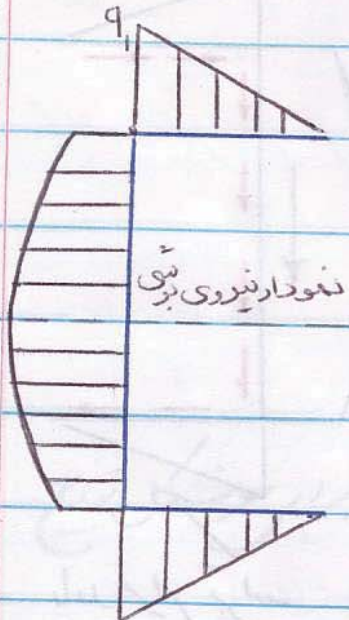 q₁
نمودار نیروی برشی